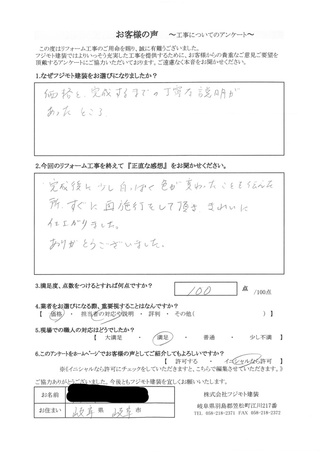 お客様の声 ～工事についてのアンケート～
この度はリフォーム工事のご用命を賜り、誠に有難うございました。
フジモト建装ではよりいっそう充実した工事を提供するために、お客様からの貴重なご意見ご要望を
頂戴するアンケートにご協力いただいております。ご遠慮なく本音をお聞かせください。
1.なぜフジモト建装をお選びになりましたか?
価格と、完成するまでの丁寧な説明が
あった所
2.今回のリフォーム工事を終えて『正直な感想』をお聞かせください。
完成後に少し白っぽく色が変わったことを伝えた
所すぐに再施行をして頂ききれいに
仕上がりました。
ありがとうございました。
3.満足度、点数をつけるとすれば何点ですか?
100 点 /100点
4.業者をお選びになる際、重要視することはなんですか?
【 価格 ・ 担当者の対応や説明 ・ 評判 ・ その他( )】
5.現場での職人の対応はどうでしたか?
【 大満足 ・ 満足 ・ 普通 ・ 少し不満 】
6.このアンケートをホームページでお客様の声としてご紹介してもよろしいですか?
【 許可する ・ イニシャルなら許可 】
※(イニシャルなら許可にチェックをしていただきますと、こちらで編集させていただきます。)
ご協力ありがとうございました。今後ともフジモト建装を宜しくお願いいたします。
お名前
お住まい 岐阜 県 岐阜 市
株式会社フジモト建装
岐阜県羽島郡笠松町江川217番
TEL 058-218-2371 FAX 058-218-2372